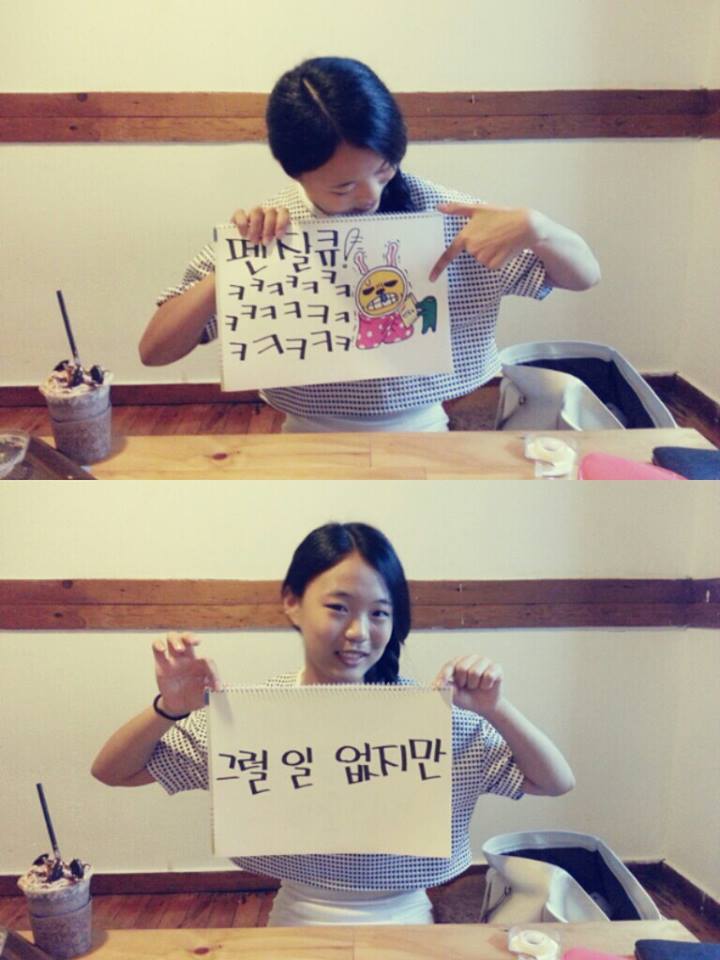 펜잘큐!
ㅋㅋㅋㅋㅋㅋ
ㅋㅋㅋㅋㅋㅋ
ㅋㅋㅋㅋㅋ
그럴 일 없지만